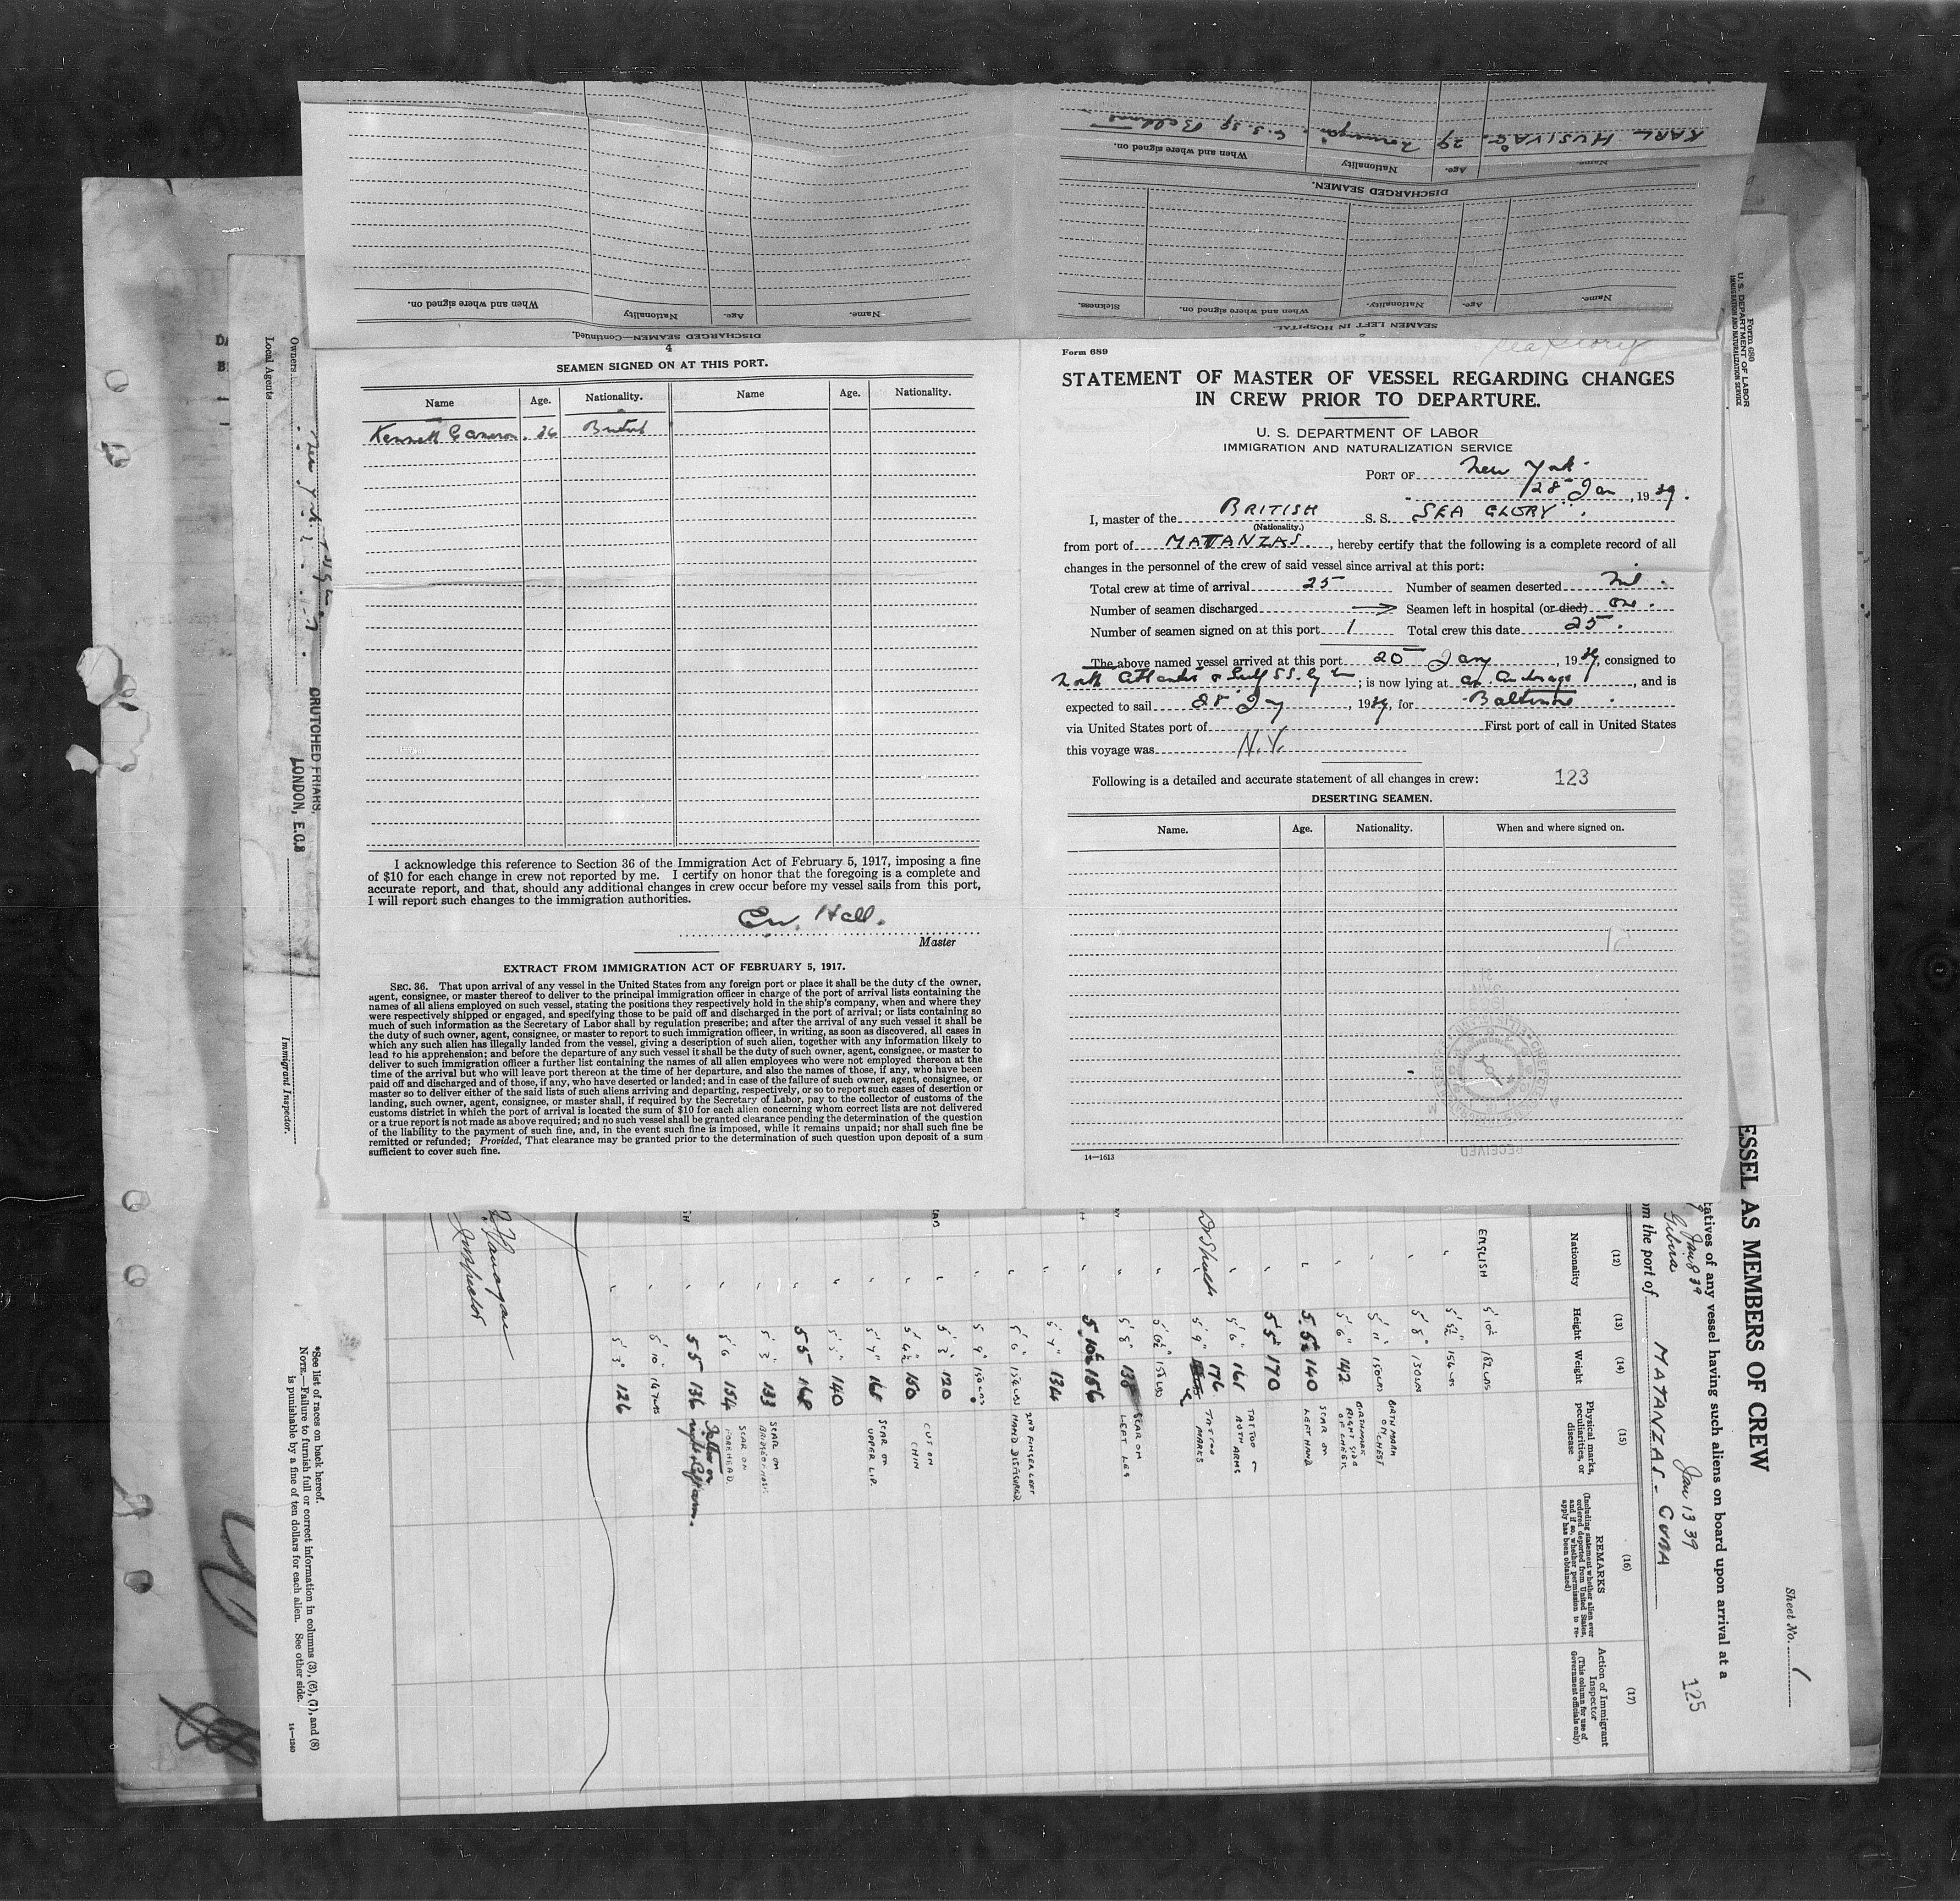 SEAMEN LEFT IN HOSPITAL.
Name. Age. Nationality. When and where signed on. Sickness.
DISCHARGED SEAMEN.
Name. Age. Nationality When and where signed on.
KARL 29
DISCHARGED SEAMEN—Continued.
Name. Age. Nationality When and where signed on.
4
SEAMEN SIGNED ON AT THIS PORT.
Name Age. Nationality. Name Age. Nationality.
Kenneth Cameron. 36 British
I acknowledge this reference to Section 36 of the Immigration Act of February 5, 1917, imposing a fine
of $10 for each change in crew not reported by me. I certify on honor that the foregoing is a complete and
accurate report, and that, should any additional changes in crew occur before my vessel sails from this port,
I will report such changes to the immigration authorities.
Hall.
Master
EXTRACT FROM IMMIGRATION ACT OF FEBRUARY 5, 1917.
SEC. 36. That upon arrival of any vessel in the United States from any foreign port or place it shall be the duty of the owner,
agent, consignee, or master thereof to deliver to the principal immigration officer in charge of the port of arrival lists containing the
names of all aliens employed on such vessel, stating the positions they respectively hold in the ship's company, when and where they
were respectively shipped or engaged, and specifying those to be paid off and discharged in the port of arrival; or lists containing so
much of such information as the Secretary of Labor shall by regulation prescribe; and after the arrival of any such vessel it shall be
the duty of such owner, agent, consignee, or master to report to such immigration officer, in writing, as soon as discovered, all cases in
which any such alien has illegally landed from the vessel, giving a description of such alien, together with any information likely to
lead to his apprehension; and before the departure of any such vessel it shall be the duty of such owner, agent, consignee, or master to
deliver to such immigration officer a further list containing the names of all alien employees who were not employed thereon at the
time of the arrival but who will leave port thereon at the time of her departure, and also the names of those, if any, who have been
paid off and discharged and of those, if any, who have deserted or landed; and in case of the failure of such owner, agent, consignee, or
master so to deliver either of the said lists of such aliens arriving and departing, respectively, or so to report such cases of desertion or
landing, such owner, agent, consignee, or master shall, if required by the Secretary of Labor, pay to the collector of customs of the
customs district in which the port of arrival is located the sum of $10 for each alien concerning whom correct lists are not delivered
or a true report is not made as above required; and no such vessel shall be granted clearance pending the determination of the question
of the liability to the payment of such fine, and, in the event such fine is imposed, while it remains unpaid; nor shall such fine be
remitted or refunded; Provided, That clearance may be granted prior to the determination of such question upon deposit of a sum
sufficient to cover such fine.
Sea Glory
Form 689
STATEMENT OF MASTER OF VESSEL REGARDING CHANGES
IN CREW PRIOR TO DEPARTURE.
U. S. DEPARTMENT OF LABOR
IMMIGRATION AND NATURALIZATION SERVICE
PORT OF New York.
28 Jan, 1939.
I, master of the BRITISH S. S. SEA GLORY.
(Nationality.)
from port of MATTANZAS., hereby certify that the following is a complete record of all
changes in the personnel of the crew of said vessel since arrival at this port:
Total crew at time of arrival 25 Number of seamen deserted nil.
Number of seamen discharged Seamen left in hospital (or died) one.
Number of seamen signed on at this port 1 Total crew this date 25.
The above named vessel arrived at this port 20 Jany, 1939, consigned to
North Atlantic & Gulf S.S. ; is now lying at anchorage, and is
expected to sail 28 Jy, 1939, for Baltimore.
via United States port of First port of call in United States
this voyage was N.Y.
Following is a detailed and accurate statement of all changes in crew: 123
DESERTING SEAMEN.
Name. Age. Nationality. When and where signed on.
RECEIVED
14—1613
Form 680
U. S. DEPARTMENT OF LABOR
IMMIGRATION AND NATURALIZATION SERVICE
Sheet No. 1
ESSEL AS MEMBERS OF CREW
tatives of any vessel having such aliens on board upon arrival at a
Gibira Jan 8 39 Jan 13 39 125
m the port of MATANZAS - CUBA
(12) (13) (14) (15) (16) (17)
Nationality Height Weight
Physical marks, peculiarities, or disease
REMARKS
(Including statement whether alien ever ordered deported from United States, and if so, whether permission to reapply has been obtained)
Action of Immigrant Inspector
(This column for use of Government officials only)
ENGLISH 5' 10½ 182 LBS
" 5' 5½" 154 LBS
5' 8" 130 LBS
" 5' 11" 150 LBS BIRTH MARK ON CHEST
" 5' 6" 142 BIRTHMARK RIGHT SIDE OF CHEEK
" 5.5½ 140 SCAR ON LEFT HAND
" 5 5 170
" 5' 6" 161 TATTOO BOTH ARMS
5' 9" 176 TATTOO MARKS
" 5' 6½" 150 LBS
" 5' 8" 138 SCAR ON LEFT LEG
" 5.10½ 156
" 5' 7" 134
" 5' 6" 156 LBS 2ND FINGER LEFT HAND DISFIGURED
" 5' 9" 150 LBS
" 5' 3" 120
" 5' 4½ 150 CUT ON CHIN
" 5' 7" 168 SCAR ON UPPER LIP.
" 5' 5" 140
" 5 5 168
" 5' 3" 133 SCAR ON BRIDGE OF NOSE.
" 5' 6 154 SCAR ON FOREHEAD.
" 5 5 136
" 5' 10" 147 LBS
" 5' 3" 126
Inspector
Owners
Local Agents
New York.
CRUTCHED FRIARS,
LONDON, E.C.3
Immigrant Inspector.
*See list of races on back hereof.
NOTE.—Failure to furnish full or correct information in columns (3), (6), (7), and (8)
is punishable by a fine of ten dollars for each alien. See other side.
14—1240